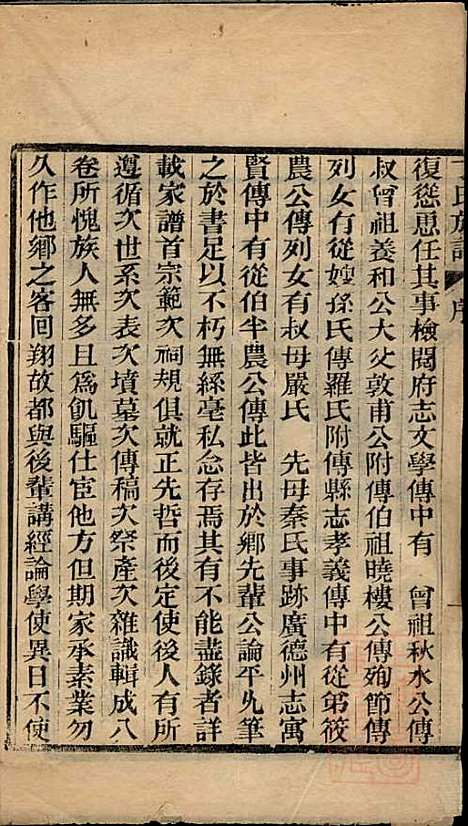 氏族譜 序
復慫思任其事檢閱府志文學傳中有 曾祖秋水公傳
叔曾祖養和公大父敦甫公附傳伯祖曉樓公傳殉節傳
列女有從嫂孫氏傳羅氏附傳縣志孝義傳中有從弟筱
農公傳列女有叔母嚴氏 先母秦氏事跡廣德州志寓
賢傳中有從伯半農公傳此皆出於鄉先輩公論平允筆
之於書足以不朽無絲毫私念存焉其有不能盡錄者詳
載家譜首宗範次祠規俱就正先哲而後定使後人有所
遵循次世系次表次墳墓次傳稿次祭產次雜識輯成八
卷所愧族人無多且爲飢驅仕宦他方但期家承素業勿
久作他鄉之客回翔故都與後輩講經論學使異日不使